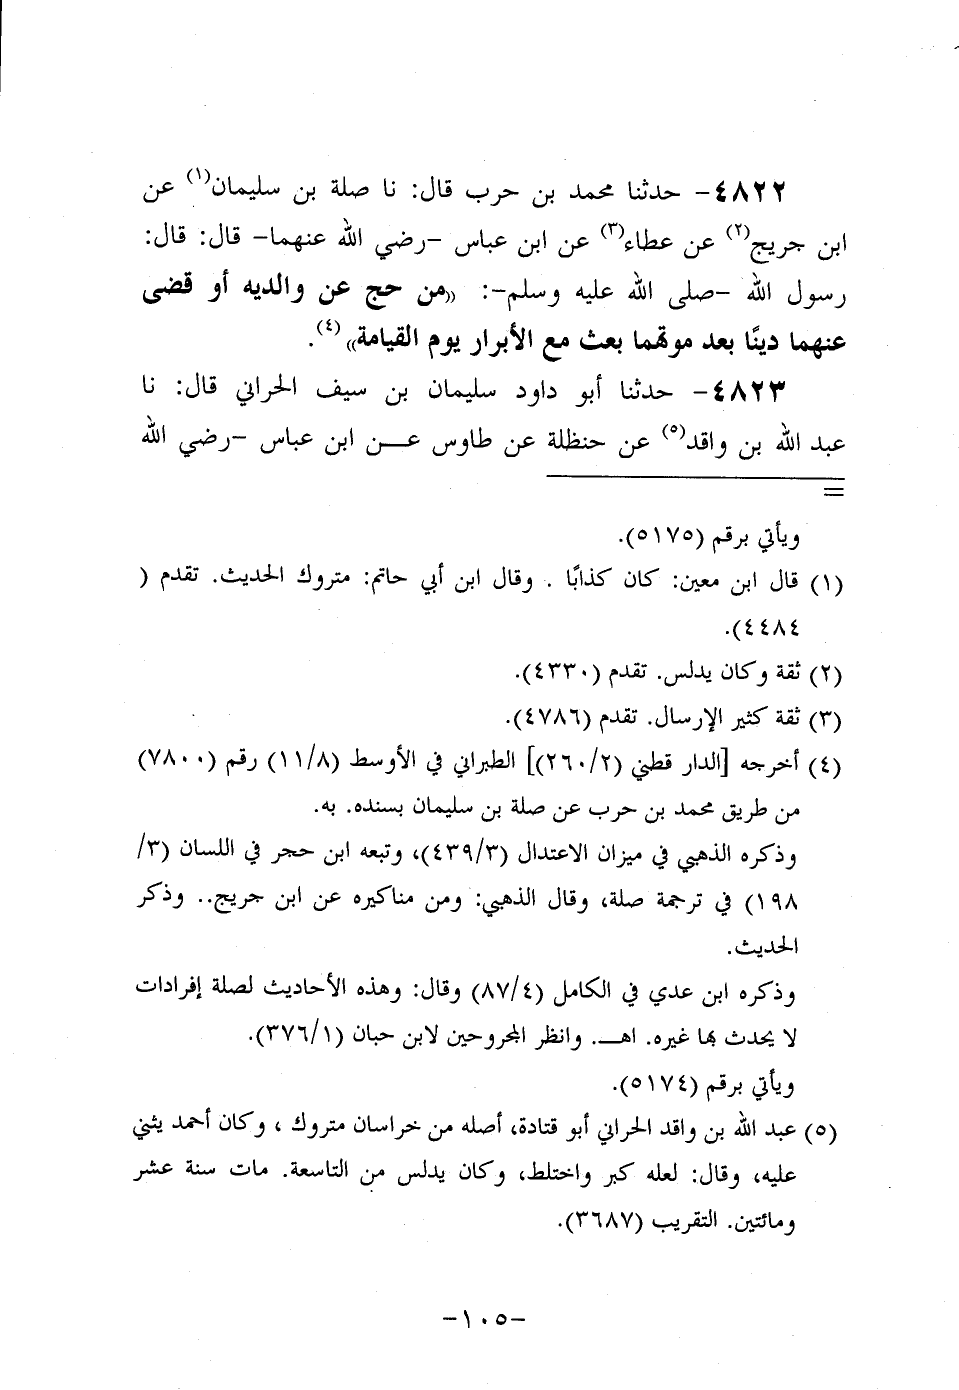 ٤٨٢٢- حدثنا محمد بن حرب قال: نا صلة بن سليمان(١) عن
ابن جريج(٢) عن عطاء(٣) عن ابن عباس -رضي الله عنهما- قال: قال:
رسول الله -صلى الله عليه وسلم-: «من حج عن والديه أو قضى
عنهما دينًا بعد موتهما بعث مع الأبرار يوم القيامة» (٤).
٤٨٢٣- حدثنا أبو داود سليمان بن سيف الحراني قال: نا
عبد الله بن واقد(٥) عن حنظلة عن طاوس عـــن ابن عباس -رضي الله
=
ويأتي برقم (٥١٧٥).
(١) قال ابن معين: كان كذابًا . وقال ابن أبي حاتم: متروك الحديث. تقدم (
٤٤٨٤).
(٢) ثقة وكان يدلس. تقدم (٤٣٣٠).
(٣) ثقة كثير الإرسال. تقدم (٤٧٨٦).
(٤) أخرجه [الدار قطني (٢٦٠/٢)] الطبراني في الأوسط (١١/٨) رقم (٧٨٠٠)
من طريق محمد بن حرب عن صلة بن سليمان بسنده. به.
وذكره الذهبي في ميزان الاعتدال (٤٣٩/٣)، وتبعه ابن حجر في اللسان (٣/
١٩٨) في ترجمة صلة، وقال الذهبي: ومن مناكيره عن ابن جريج.. وذكر
الحديث.
وذكره ابن عدي في الكامل (٨٧/٤) وقال: وهذه الأحاديث لصلة إفرادات
لا يحدث بها غيره. اهـــ. وانظر المجروحين لابن حبان (٣٧٦/١).
ويأتي برقم (٥١٧٤).
(٥) عبد الله بن واقد الحراني أبو قتادة، أصله من خراسان متروك ، وكان أحمد يثني
عليه، وقال: لعله كبر واختلط، وكان يدلس من التاسعة. مات سنة عشر
ومائتين. التقريب (٣٦٨٧).
-١٠٥-